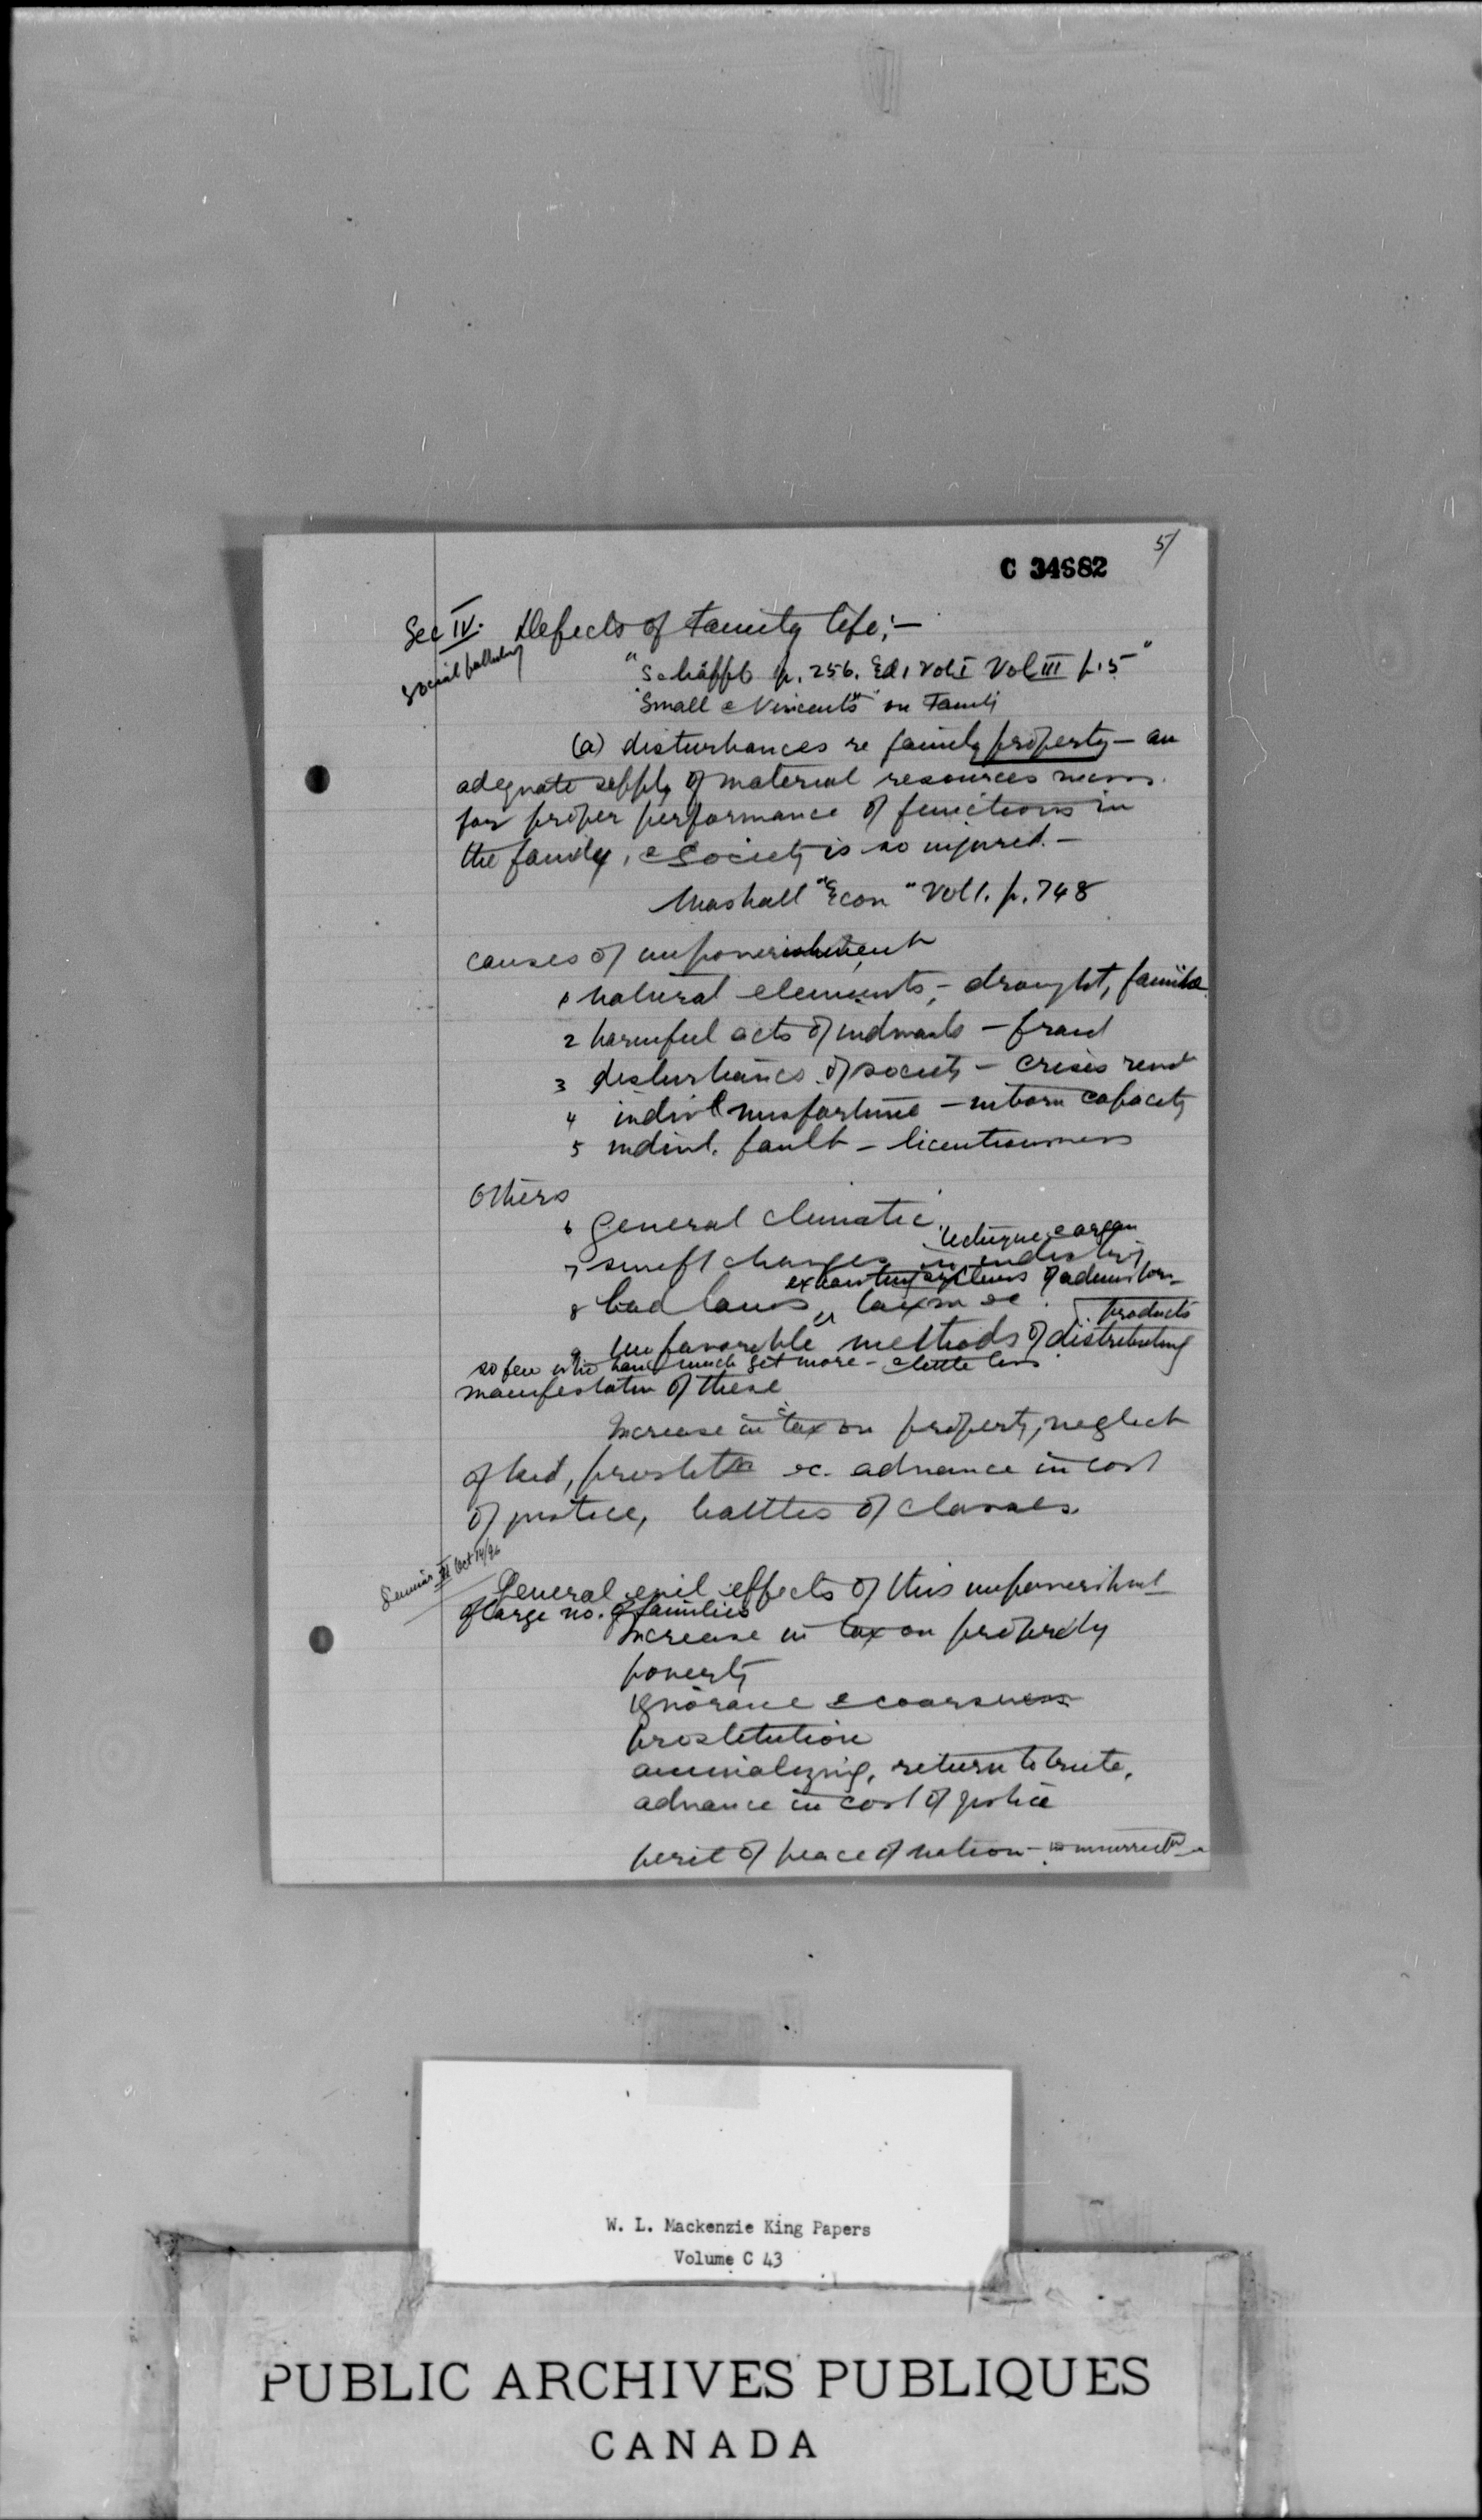 5/
C 34682
Sec IV. Defects of Family life;—
Social pathology
"Schäffle p. 256. Ed, Vol I Vol III p. 5"
"Small & Vincents" on Family
(a) disturbances re family property — an
adequate supply of material resources necess.
for proper performance of functions in
the family, & Society is so injured. —
Marshall "Econ" Vol 1. p. 748
causes of impoverishment
1 natural elements, - drought, famine
2 harmful acts of individuals — fraud
3 disturbances of society — crises
4 indivl misfortune — inborn capacity
5 indivl. fault — licentiousness
Others
6 General climatic.
technique & organ
7 swift changes in industry
exhausting systems of administrn
8 bad laws, " taxn &c.
products
9 unfavorable methods of distributing
so few who have much get more - & little less
manifestation of these
Increase in tax on property, neglect
of kid, prostitn &c. advance in cost
of justice, battles of classes.
Seminar III Oct 14/96
General evil effects of this impoverishmt
of large no. of families
Increase in tax on property
poverty
ignorance & coarseness
prostitution
animalizing, return to brute,
advance in cost of justice
peril of peace of nation -
W. L. Mackenzie King Papers
Volume C 43
PUBLIC ARCHIVES PUBLIQUES
CANADA